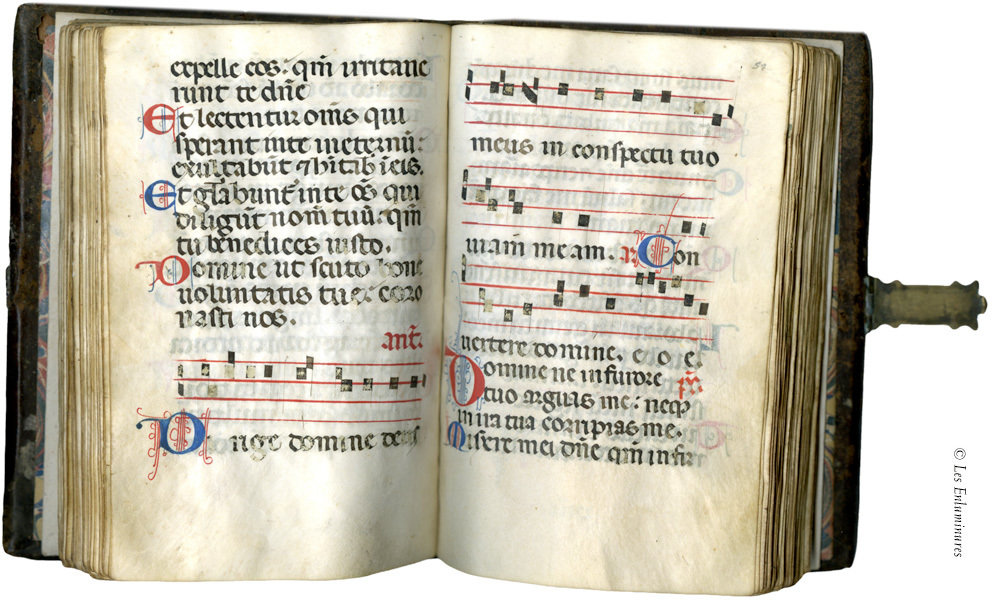 expelle eos: qm̄ irritaue
runt te dn̄e
Et lectentur om̄s qui
sperant in te in eternū:
exultabūt ⁊ hītab ī eis.
Et gl̄abunt̄ in te oēs qui
diligūt nom̄ tuū: qm̄
tu benedices iusto.
Domine ut scuto bone
uoluntatis tue: coro
nasti nos.
ant̄.
Dirige domine deus
57
meus in conspectu tuo
uiam meam. Con
uertere domine. e o e
Domine ne in furore ps̄
tuo arguas me: neqȝ
in ira tua corripias me.
Misere mei dn̄e qm̄ infir
© Les Enluminures